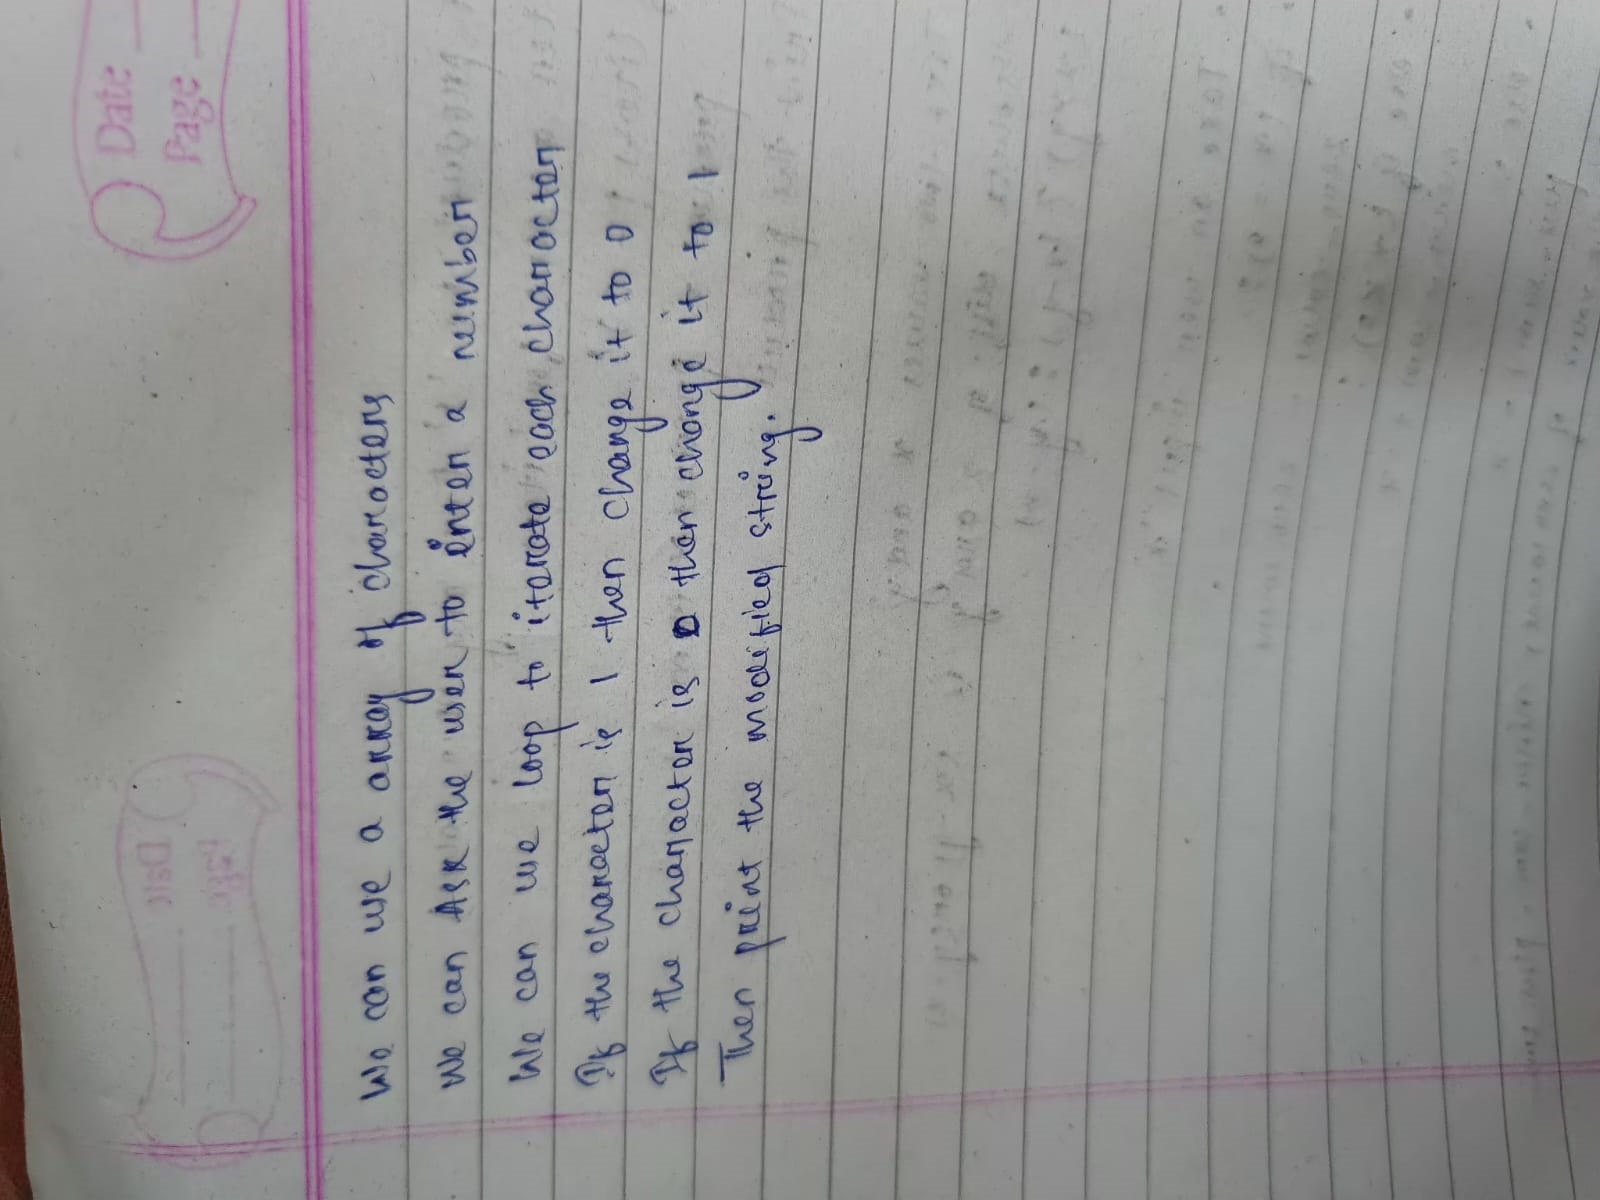 Date
Page
We can use a array of characters
We can Ask the user to enter a number
We can use loop to iterate each character
If the character is 1 then change it to 0
If the character is 0 then change it to 1
Then print the modified string.